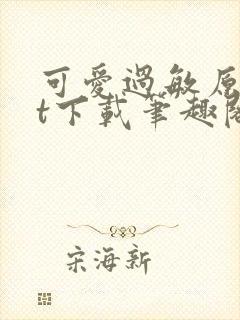 可愛過敏原
t下載筆趣閣
宋海新